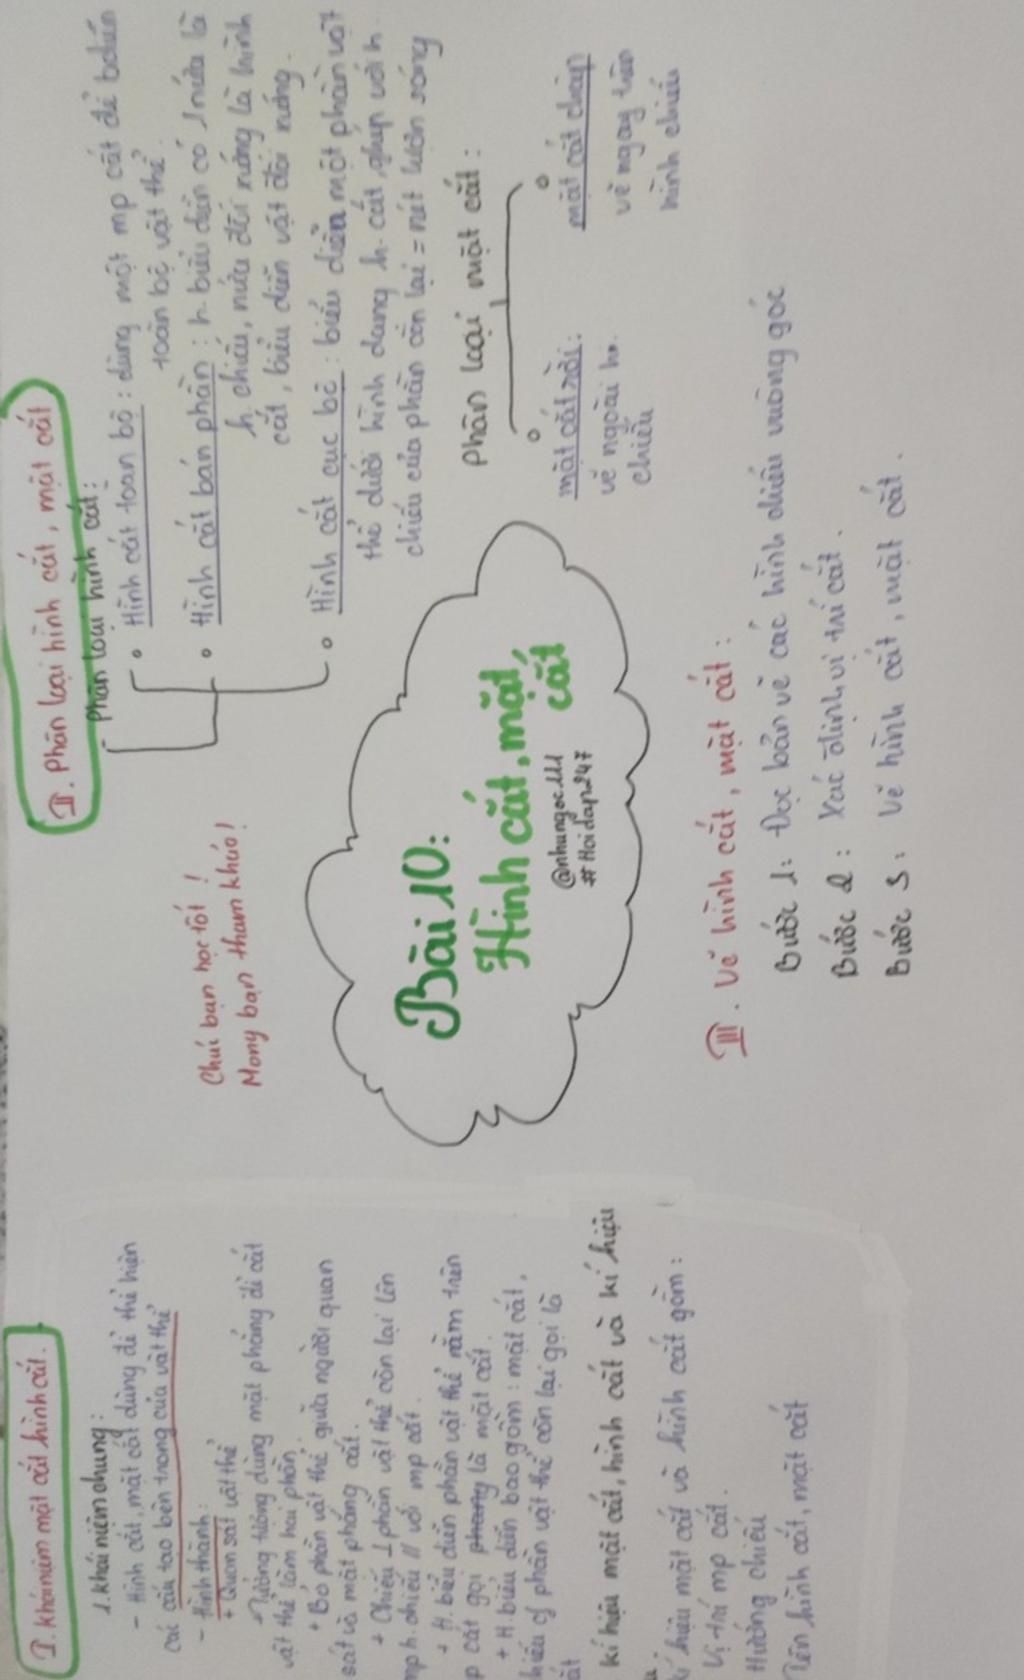 I. Khái niệm mặt cắt hình cắt.
1. Khái niệm chung:
- Hình cắt, mặt cắt dùng để thể hiện
các cấu tạo bên trong của vật thể
- Hình thành:
+ Quan sát vật thể
Tưởng tượng dùng mặt phẳng để cắt
vật thể làm hai phần
+ Bỏ phần vật thể giữa người quan
sát và mặt phẳng cắt.
+ Chiếu ⊥ phần vật thể còn lại lên
mp h. chiếu // với mp cắt.
+ H. biểu diễn phần vật thể nằm trên
p cắt gọi là mặt cắt.
+ H. biểu diễn bao gồm: mặt cắt,
hiếu of phần vật thể còn lại gọi là
ắt
kí hiệu mặt cắt, hình cắt và kí hiệu
kí hiệu mặt cắt và hình cắt gồm:
Vị trí mp cắt.
Hướng chiếu
Tên hình cắt, mặt cắt
Chúc bạn học tốt!
Mong bạn tham khảo!
Bài 10:
Hình cắt, mặt
cắt
@nhungoc111
#Hoidap247
II. Phân loại hình cắt, mặt cắt
- Phân loại hình cắt:
Hình cắt toàn bộ: dùng một mp cắt để bdiễn
toàn bộ vật thể.
Hình cắt bán phần: h. biểu diễn có 1 nửa là
h. chiếu, nửa đối xứng là hình
cắt, biểu diễn vật đối xứng.
Hình cắt cục bộ: biểu diễn một phần vật
thể dưới hình dạng h. cắt, ghép với h.
chiếu của phần còn lại = nét lượn sóng
Phân loại mặt cắt:
mặt cắt rời:
vẽ ngoài hr.
chiếu
mặt cắt chập
vẽ ngay trên
hình chiếu
III. Vẽ hình cắt, mặt cắt:
Bước 1: Đọc bản vẽ các hình chiếu vuông góc
Bước 2: Xác định vị trí cắt.
Bước 3: Vẽ hình cắt, mặt cắt.